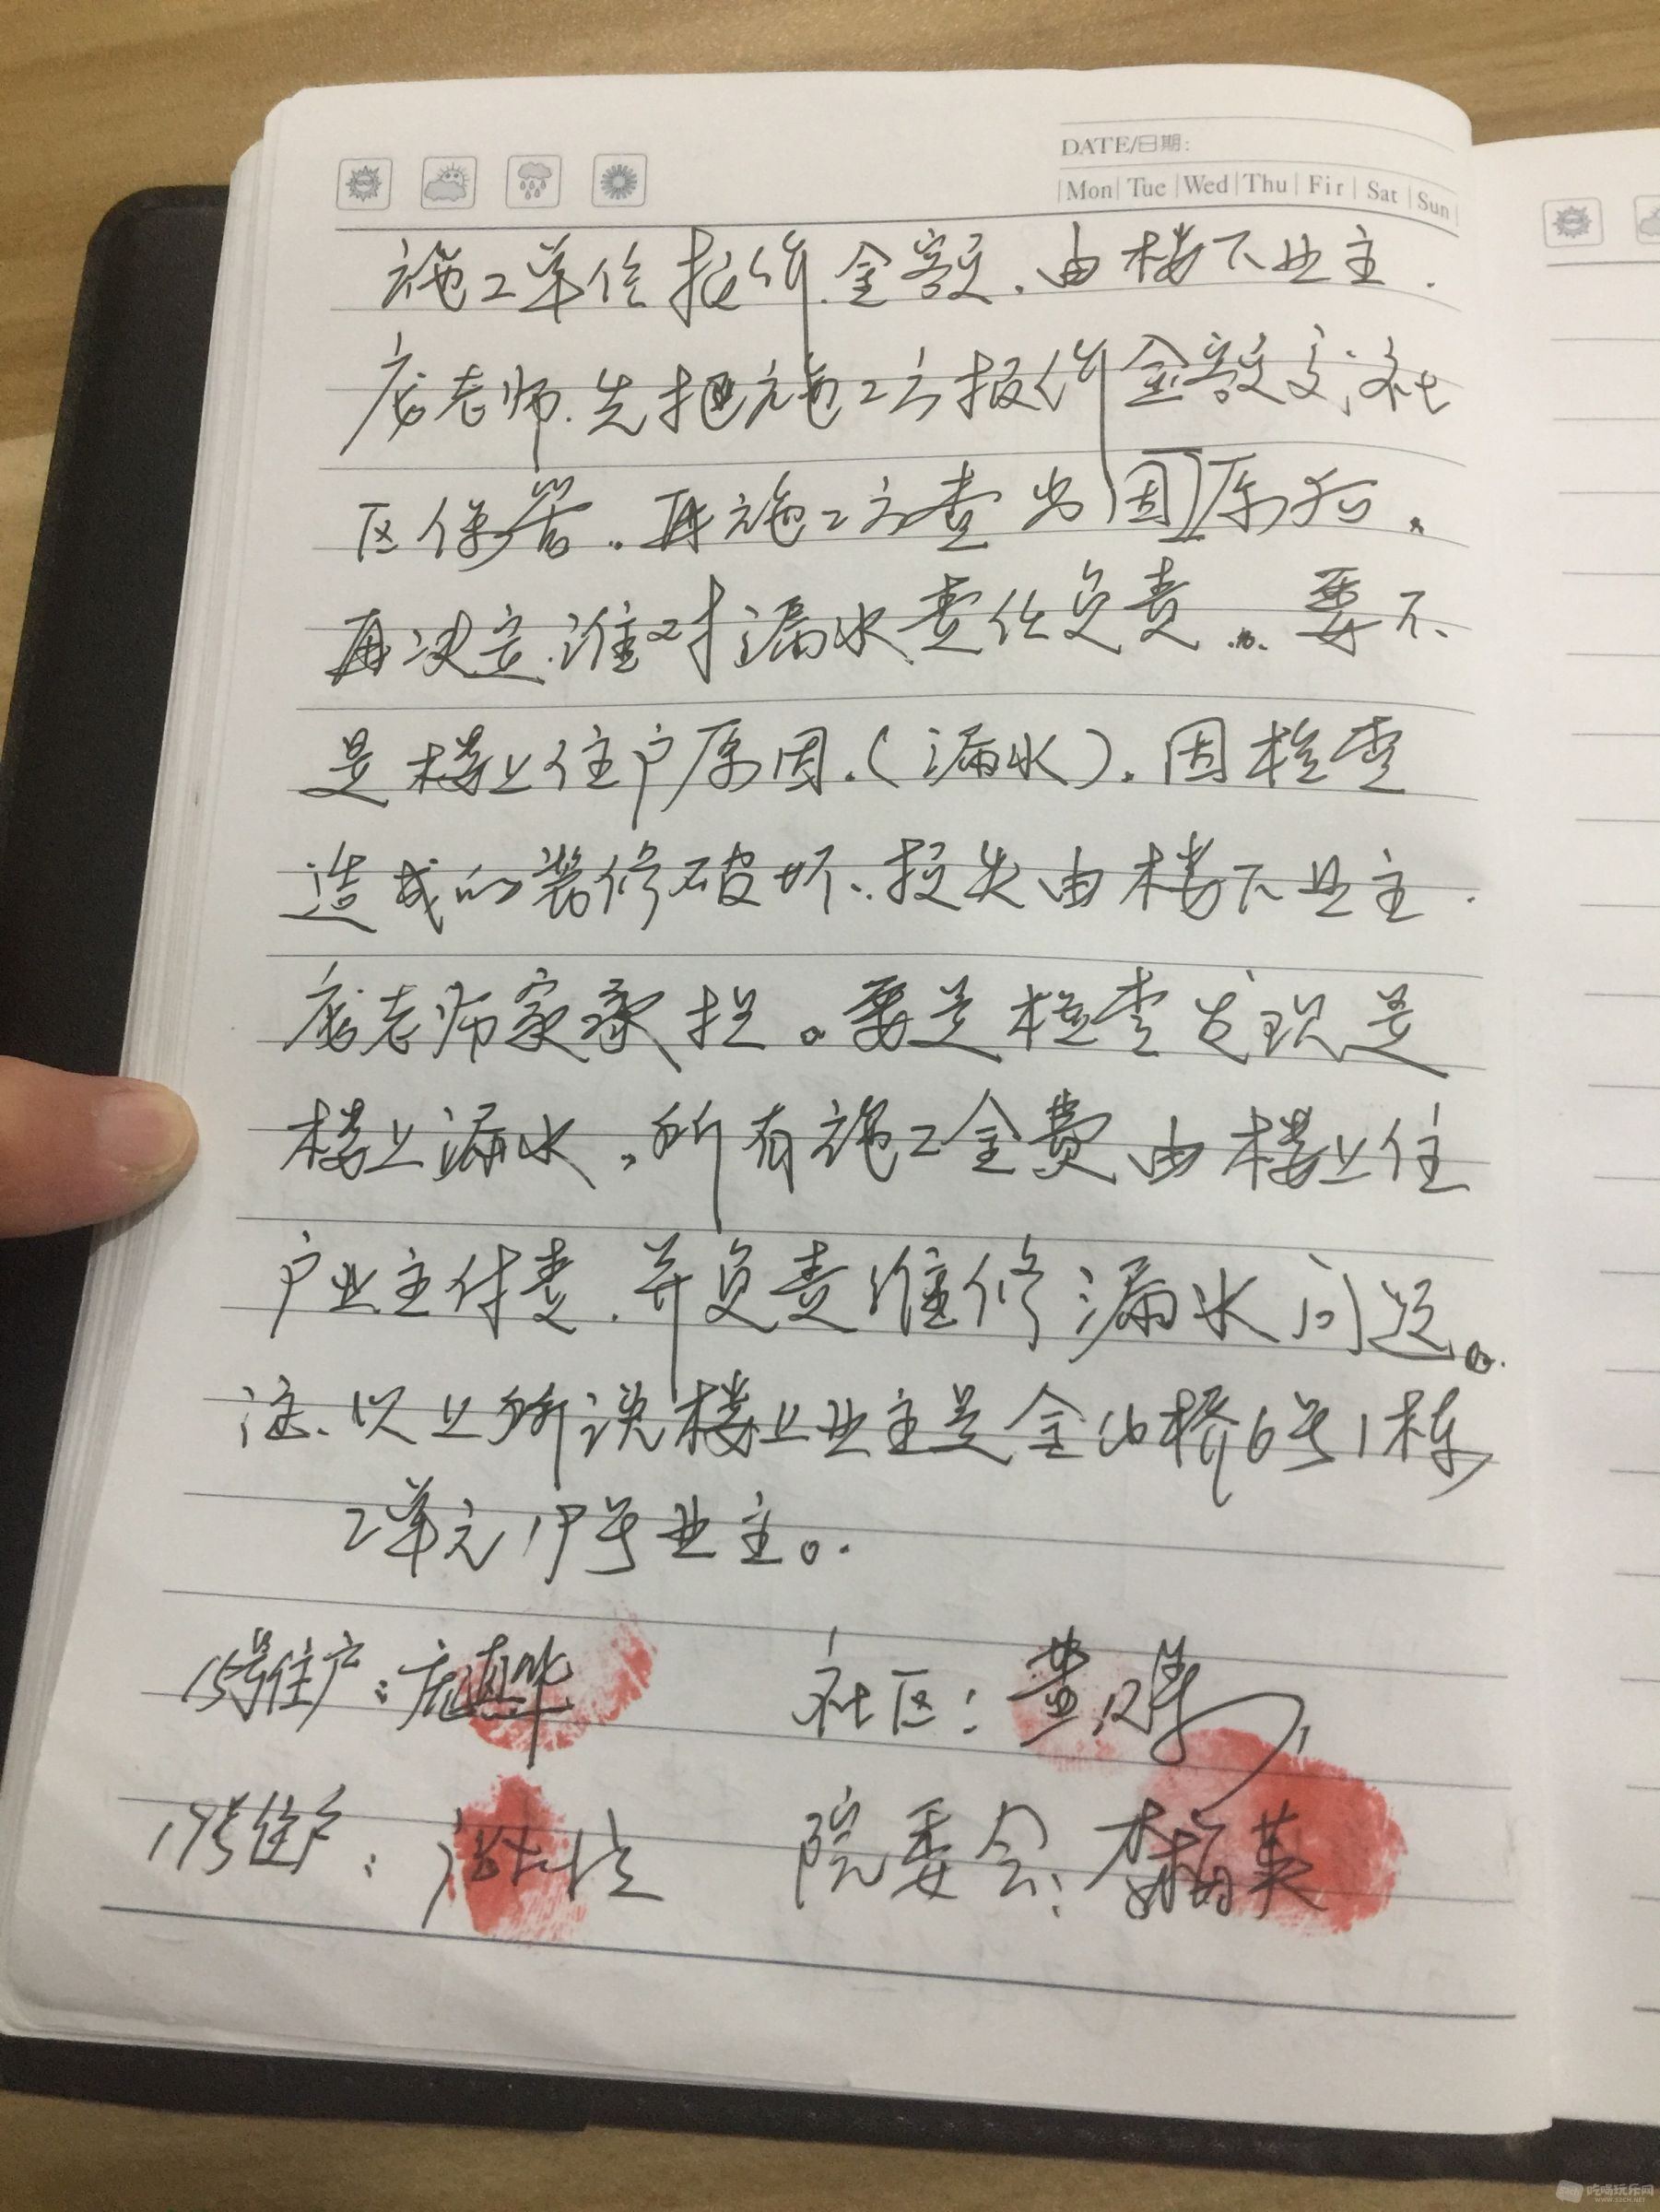 DATE/日期:
Mon Tue Wed Thu Fir Sat Sun
施工单位报价.金额.由楼下业主.
庞老师.先把施工方报价金额交社
区保管。再施工方查出因原 。
再决定.谁对漏水责任负责... 要不
是楼上住户原因.(漏水).因检查
造成的装修破坏、损失由楼下业主.
庞老师家承担。要是检查发现是
楼上漏水,所有施工金费由楼上住
户业主付责.并负责维修漏水问题。
注、以上所说楼上业主是金 桥6号1栋
2单元19号业主。
15号住户:庞 华
社区:黄
19号住户:
院委会:李梅英
吃喝玩乐网